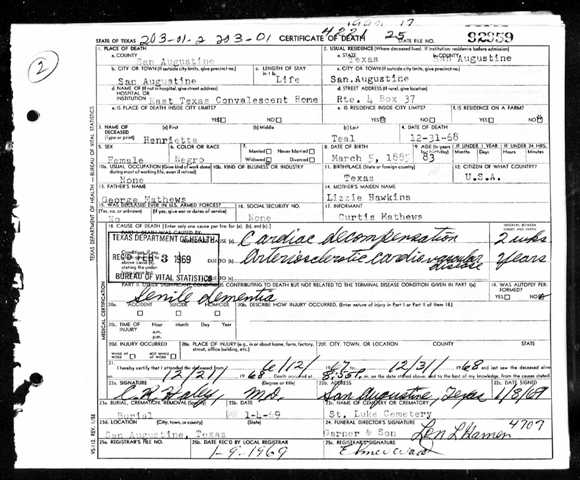 STATE OF TEXAS 203-01-2 203-01 CERTIFICATE OF DEATH STATE FILE NO. 82959
2
1. PLACE OF DEATH
a. COUNTY
San Augustine
2. USUAL RESIDENCE (Where deceased lived. If institution: residence before admission)
a. STATE
Texas
b. COUNTY
San Augustine
b. CITY OR TOWN (If outside city limits, give precinct no.)
San Augustine
c. LENGTH OF STAY
Life
c. CITY OR TOWN (If outside city limits, give precinct no.)
San. Augustine
d. NAME OF (If not in hospital, give street address)
HOSPITAL OR
INSTITUTION
East Texas Convalescent Home
d. STREET ADDRESS (If rural, give location)
Rte. 4 Box 37
e. IS PLACE OF DEATH INSIDE CITY LIMITS?
YES NO
e. IS RESIDENCE INSIDE CITY LIMITS?
YES NO
f. IS RESIDENCE ON A FARM?
YES NO
3. NAME OF
DECEASED
(Type or print)
(a) First
Henrietta
(b) Middle
(c) Last
Teal
4. DATE OF DEATH
12-31-68
5. SEX
Female
6. COLOR OR RACE
Negro
7. Married Never Married
Widowed Divorced
8. DATE OF BIRTH
March 5, 1885
9. AGE
83
IF UNDER 1 YEAR
Months Days
IF UNDER 24 HRS.
Hours
10a. USUAL OCCUPATION (Give kind of work done
during most of working life, even if retired)
None
10b. KIND OF BUSINESS OR INDUSTRY
11. BIRTHPLACE (State or foreign country)
Texas
12. CITIZEN OF WHAT COUNTRY?
U.S.A.
13. FATHER'S NAME
George Mathews
14. MOTHER'S MAIDEN NAME
Lizzie Hawkins
15. WAS DECEASED EVER IN U.S. ARMED FORCES?
(Yes, no, or unknown) (If yes, give war or dates of service)
No
16. SOCIAL SECURITY NO.
None
17. INFORMANT
Curtis Mathews
18. CAUSE OF DEATH (Enter only one cause per line for (a), (b), and (c).)
PART I. DEATH WAS CAUSED BY:
Cardiac decompensation
2 wks
Arteriosclerotic cardiovascular
disease
years
TEXAS DEPARTMENT OF HEALTH
REC'D FEB 3 1969
BUREAU OF VITAL STATISTICS
PART II. OTHER SIGNIFICANT CONDITIONS CONTRIBUTING TO DEATH BUT NOT RELATED TO THE TERMINAL DISEASE CONDITION GIVEN IN PART I (a)
Senile dementia
19. WAS AUTOPSY PERFORMED?
YES NO
20a. ACCIDENT SUICIDE HOMICIDE
20b. DESCRIBE HOW INJURY OCCURRED. (Enter nature of injury in Part I or Part II of item 18.)
20c. TIME OF
INJURY
Hour Month Day Year
a.m.
p.m.
20d. INJURY OCCURRED
WHILE AT WORK NOT WHILE AT WORK
20e. PLACE OF INJURY (e.g., in or about home, farm, factory,
street, office building, etc.)
20f. CITY, TOWN, OR LOCATION
COUNTY
STATE
21. I hereby certify that I attended the deceased from
12/31 1968
12/21 1968
22a. SIGNATURE
(Degree or title)
C.R. Haley, M.D.
22b. ADDRESS
San Augustine, Texas
22c. DATE SIGNED
1/8/69
23a. BURIAL, CREMATION, REMOVAL (Specify)
Burial
23b. DATE
1-4-69
23c. NAME OF CEMETERY OR CREMATORY
St. Luke Cemetery
23d. LOCATION (City, town, or county) (State)
San Augustine, Texas
24. FUNERAL DIRECTOR'S SIGNATURE
Garner & Son
4707
25a. REGISTRAR'S FILE NO.
25b. DATE REC'D BY LOCAL REGISTRAR
1-9-1969
25c. REGISTRAR'S SIGNATURE
TEXAS DEPARTMENT OF HEALTH — BUREAU OF VITAL STATISTICS
MEDICAL CERTIFICATION